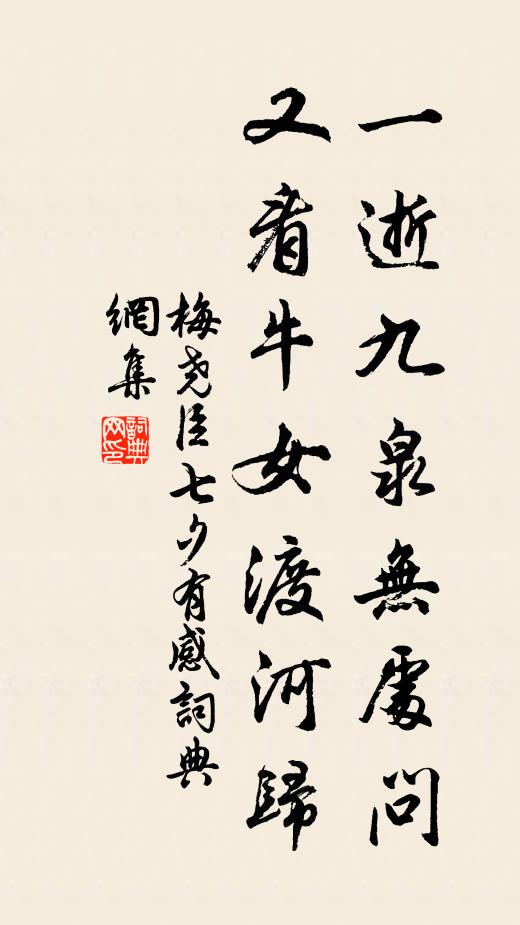 一逝九泉無處問
又看牛女渡河歸
梅堯臣七夕有感詞典
網集
詞典網印